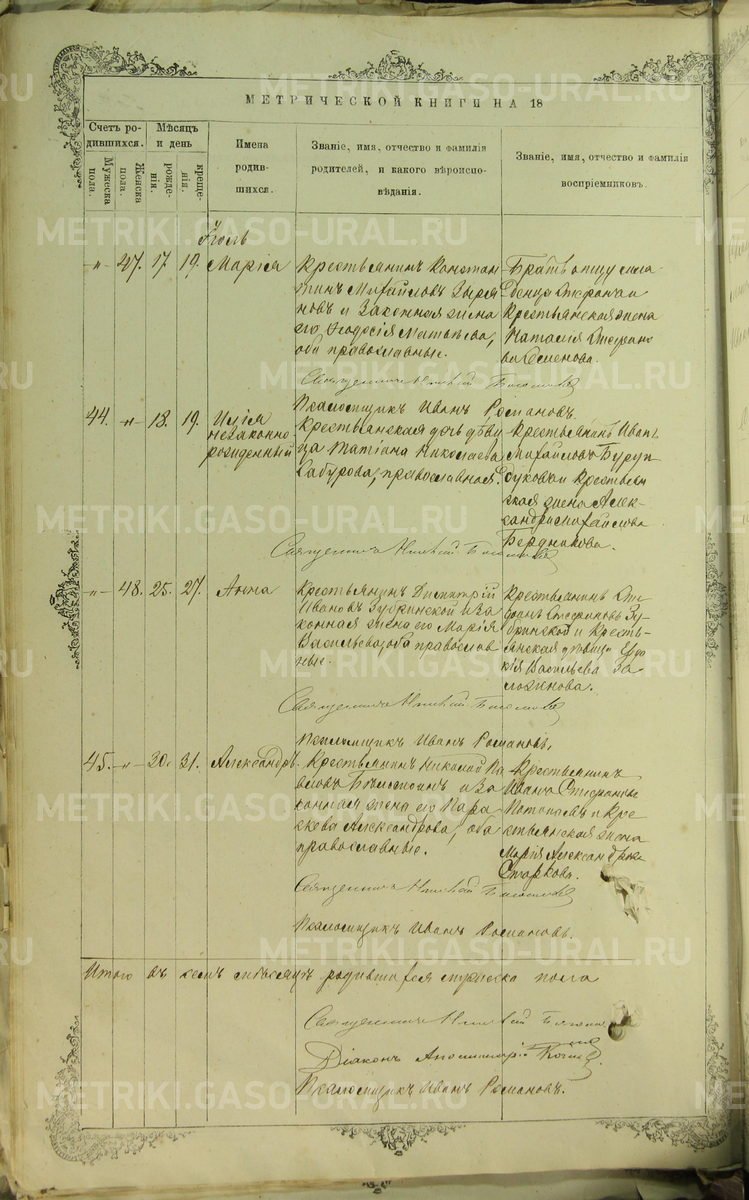 МЕТРИЧЕСКОЙ КНИГИ НА 18
Счетъ ро-
дившихся.
Мѣсяцъ
и день
Мужеска
пола.
Женска
пола.
рожде-
нія.
креще-
нія.
Имена
родив-
шихся.
Званіе, имя, отчество и фамилія
родителей, и какого вѣроиспо-
вѣданія.
Званіе, имя, отчество и фамилія
воспріемниковъ.
Іюль
-„- 47. 17. 19. Марія
Крестьянинъ Констан
тинъ Михайловъ Зыря
новъ и законная жена
его Ѳеодосія Матвѣева,
оба православные.
Братъ отцу мла
денца Стефанъ и
Крестьянская жена
Наталія Стефано
ва Семенова.
Священникъ
Псаломщикъ Иванъ Романовъ.
44. -„- 18. 19. Илія
незаконно
рожденный
Крестьянская дочь дѣви
ца Татіана Николаева
Сабурова, православная.
Крестьянинъ Иванъ
Михайловъ
и Крестьян
ская жена Алек-
сандра Михайлова
Бердникова.
Священникъ
-„- 48. 25. 27. Анна
Крестьянинъ Димитрій
Ивановъ Зубринской и за
конная жена его Марія
Васильева, оба православ
ные.
Крестьянинъ Сте
фанъ Стефановъ Зу-
бринской и кресть-
янская дѣвица
Васильева За
ложнова.
Священникъ
Псаломщикъ Иванъ Романовъ.
45. -„- 30. 31. Александръ.
Крестьянинъ Николай Па
вловъ и за
конная жена его Пара
скева Александрова, оба
православные.
Крестьянинъ
Иванъ Стефановъ
Потаповъ и кре
стьянская жена
Марія Александрова
Старкова.
Священникъ
Псаломщикъ Иванъ Романовъ.
Итого въ семъ мѣсяцѣ родившагося мужеска пола
Священникъ
Діаконъ
Псаломщикъ Иванъ Романовъ.
METRIKI.GASO-URAL.RU